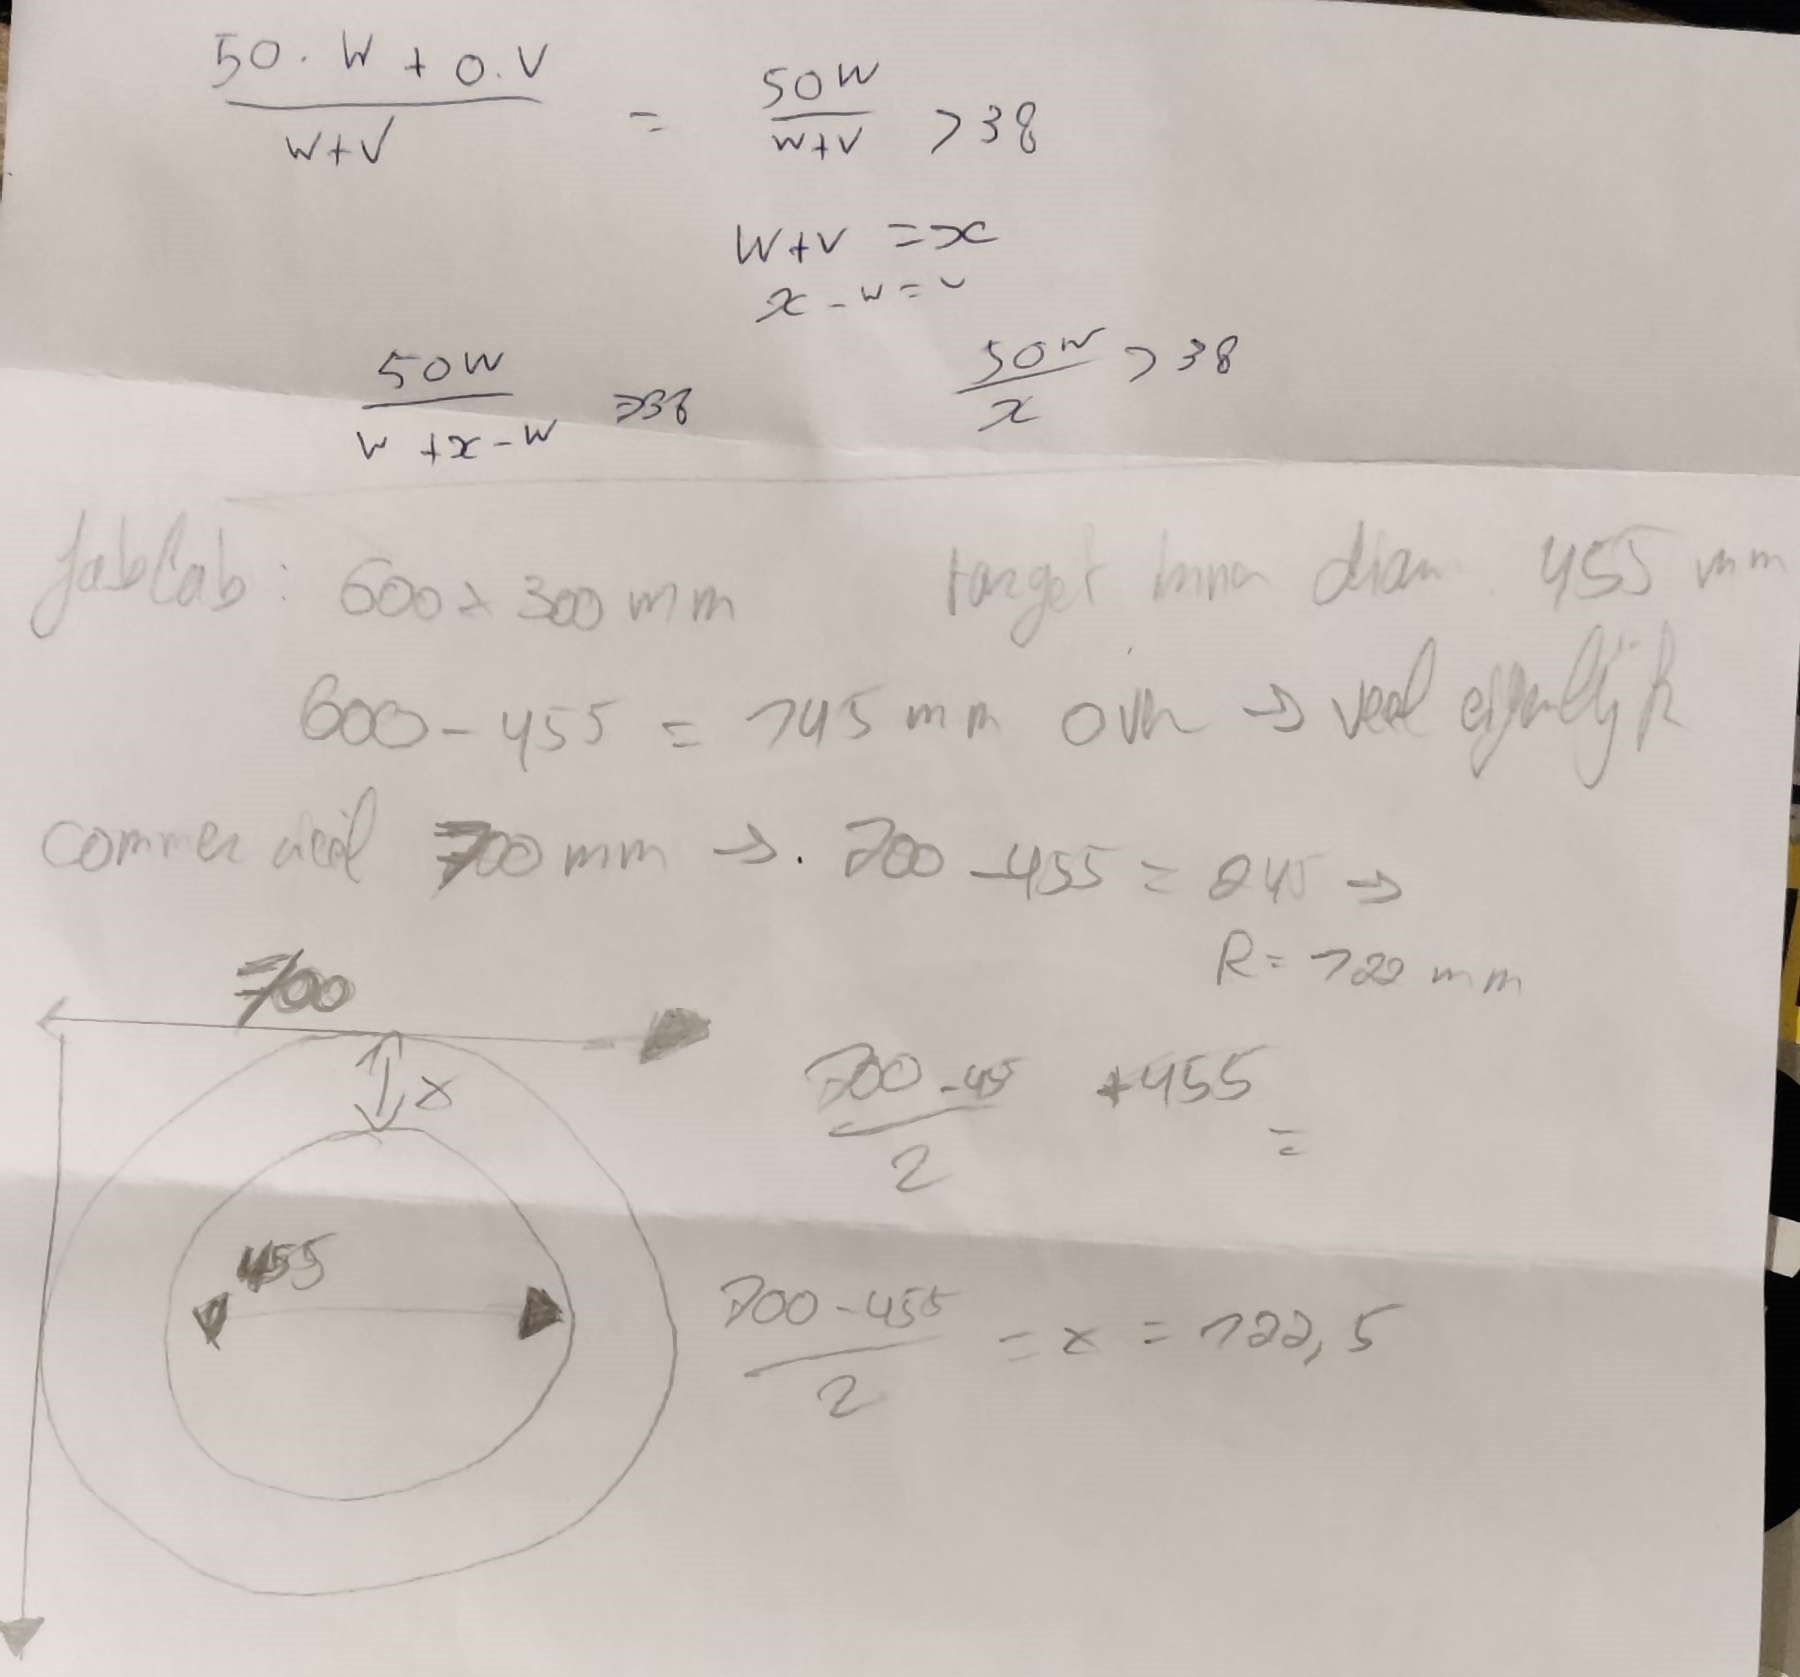 50. W + 0. V / W+V = 50W / W+V > 38
W+V = x
x - W = V
50W / W + x - W > 38
50W / x > 38
fablab: 600 x 300 mm target inner diam. 455 mm
600 - 455 = 145 mm over → veel eigenlijk
commercieel 700 mm → . 700 - 455 = 245 →
R = 122 mm
700
x
700 - 45 / 2 + 455 =
455
700 - 455 / 2 = x = 122,5